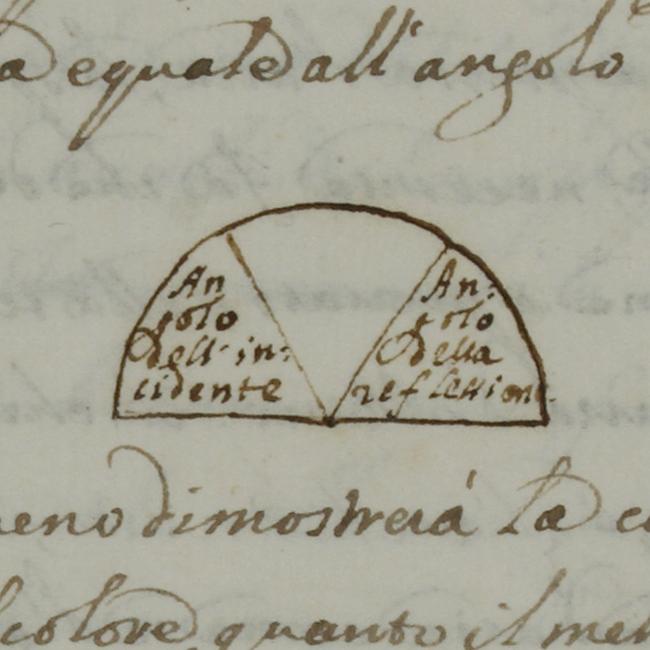 a equale all'angolo
An
golo
dell'in:
cidente
An:
golo
della
reflessione
meno dimostrerá la co
colore, quanto il men